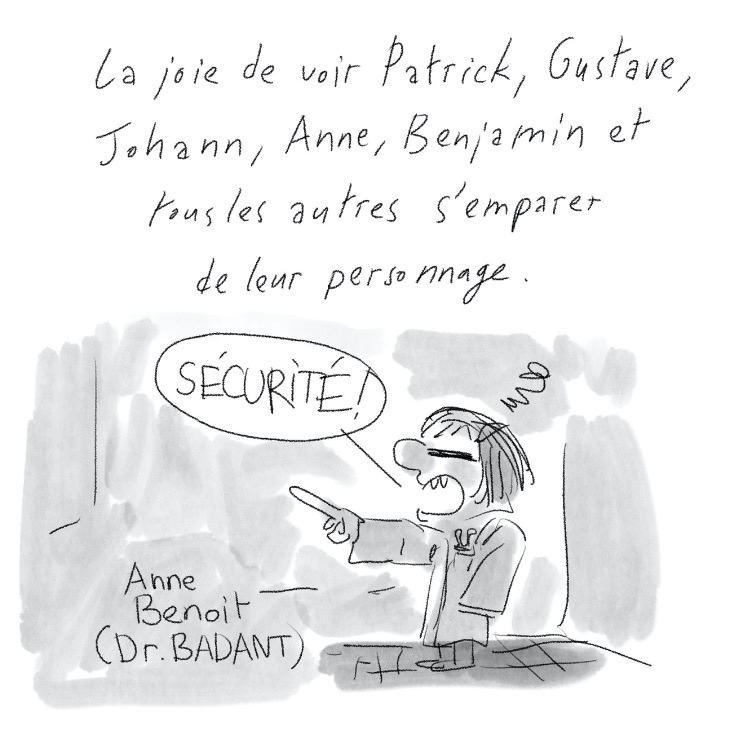 La joie de voir Patrick, Gustave,
Johann, Anne, Benjamin et
tous les autres s'emparer
de leur personnage.
SÉCURITÉ!
Anne
Benoit
(Dr. BADANT)